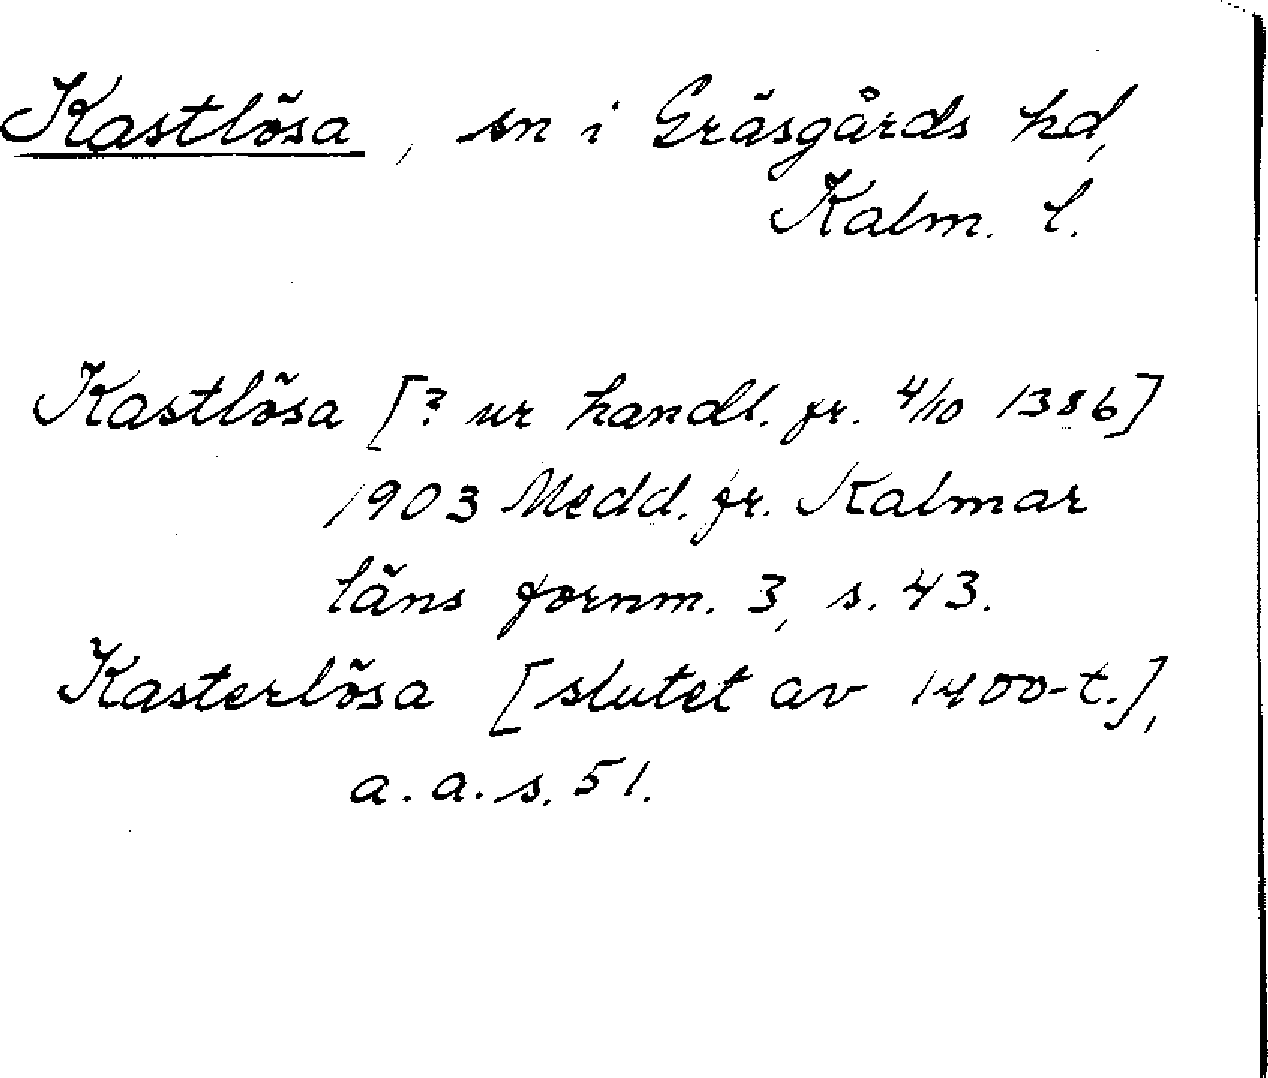 Kastlösa, sn i Gräsgårds hd,
Kalm. l.
Kastlösa [? ur handl. fr. 4/10 1386]
1903 Medd. fr. Kalmar
läns fornm. 3, s. 43.
Kasterlösa [slutet av 1400-t.],
a. a. s. 51.